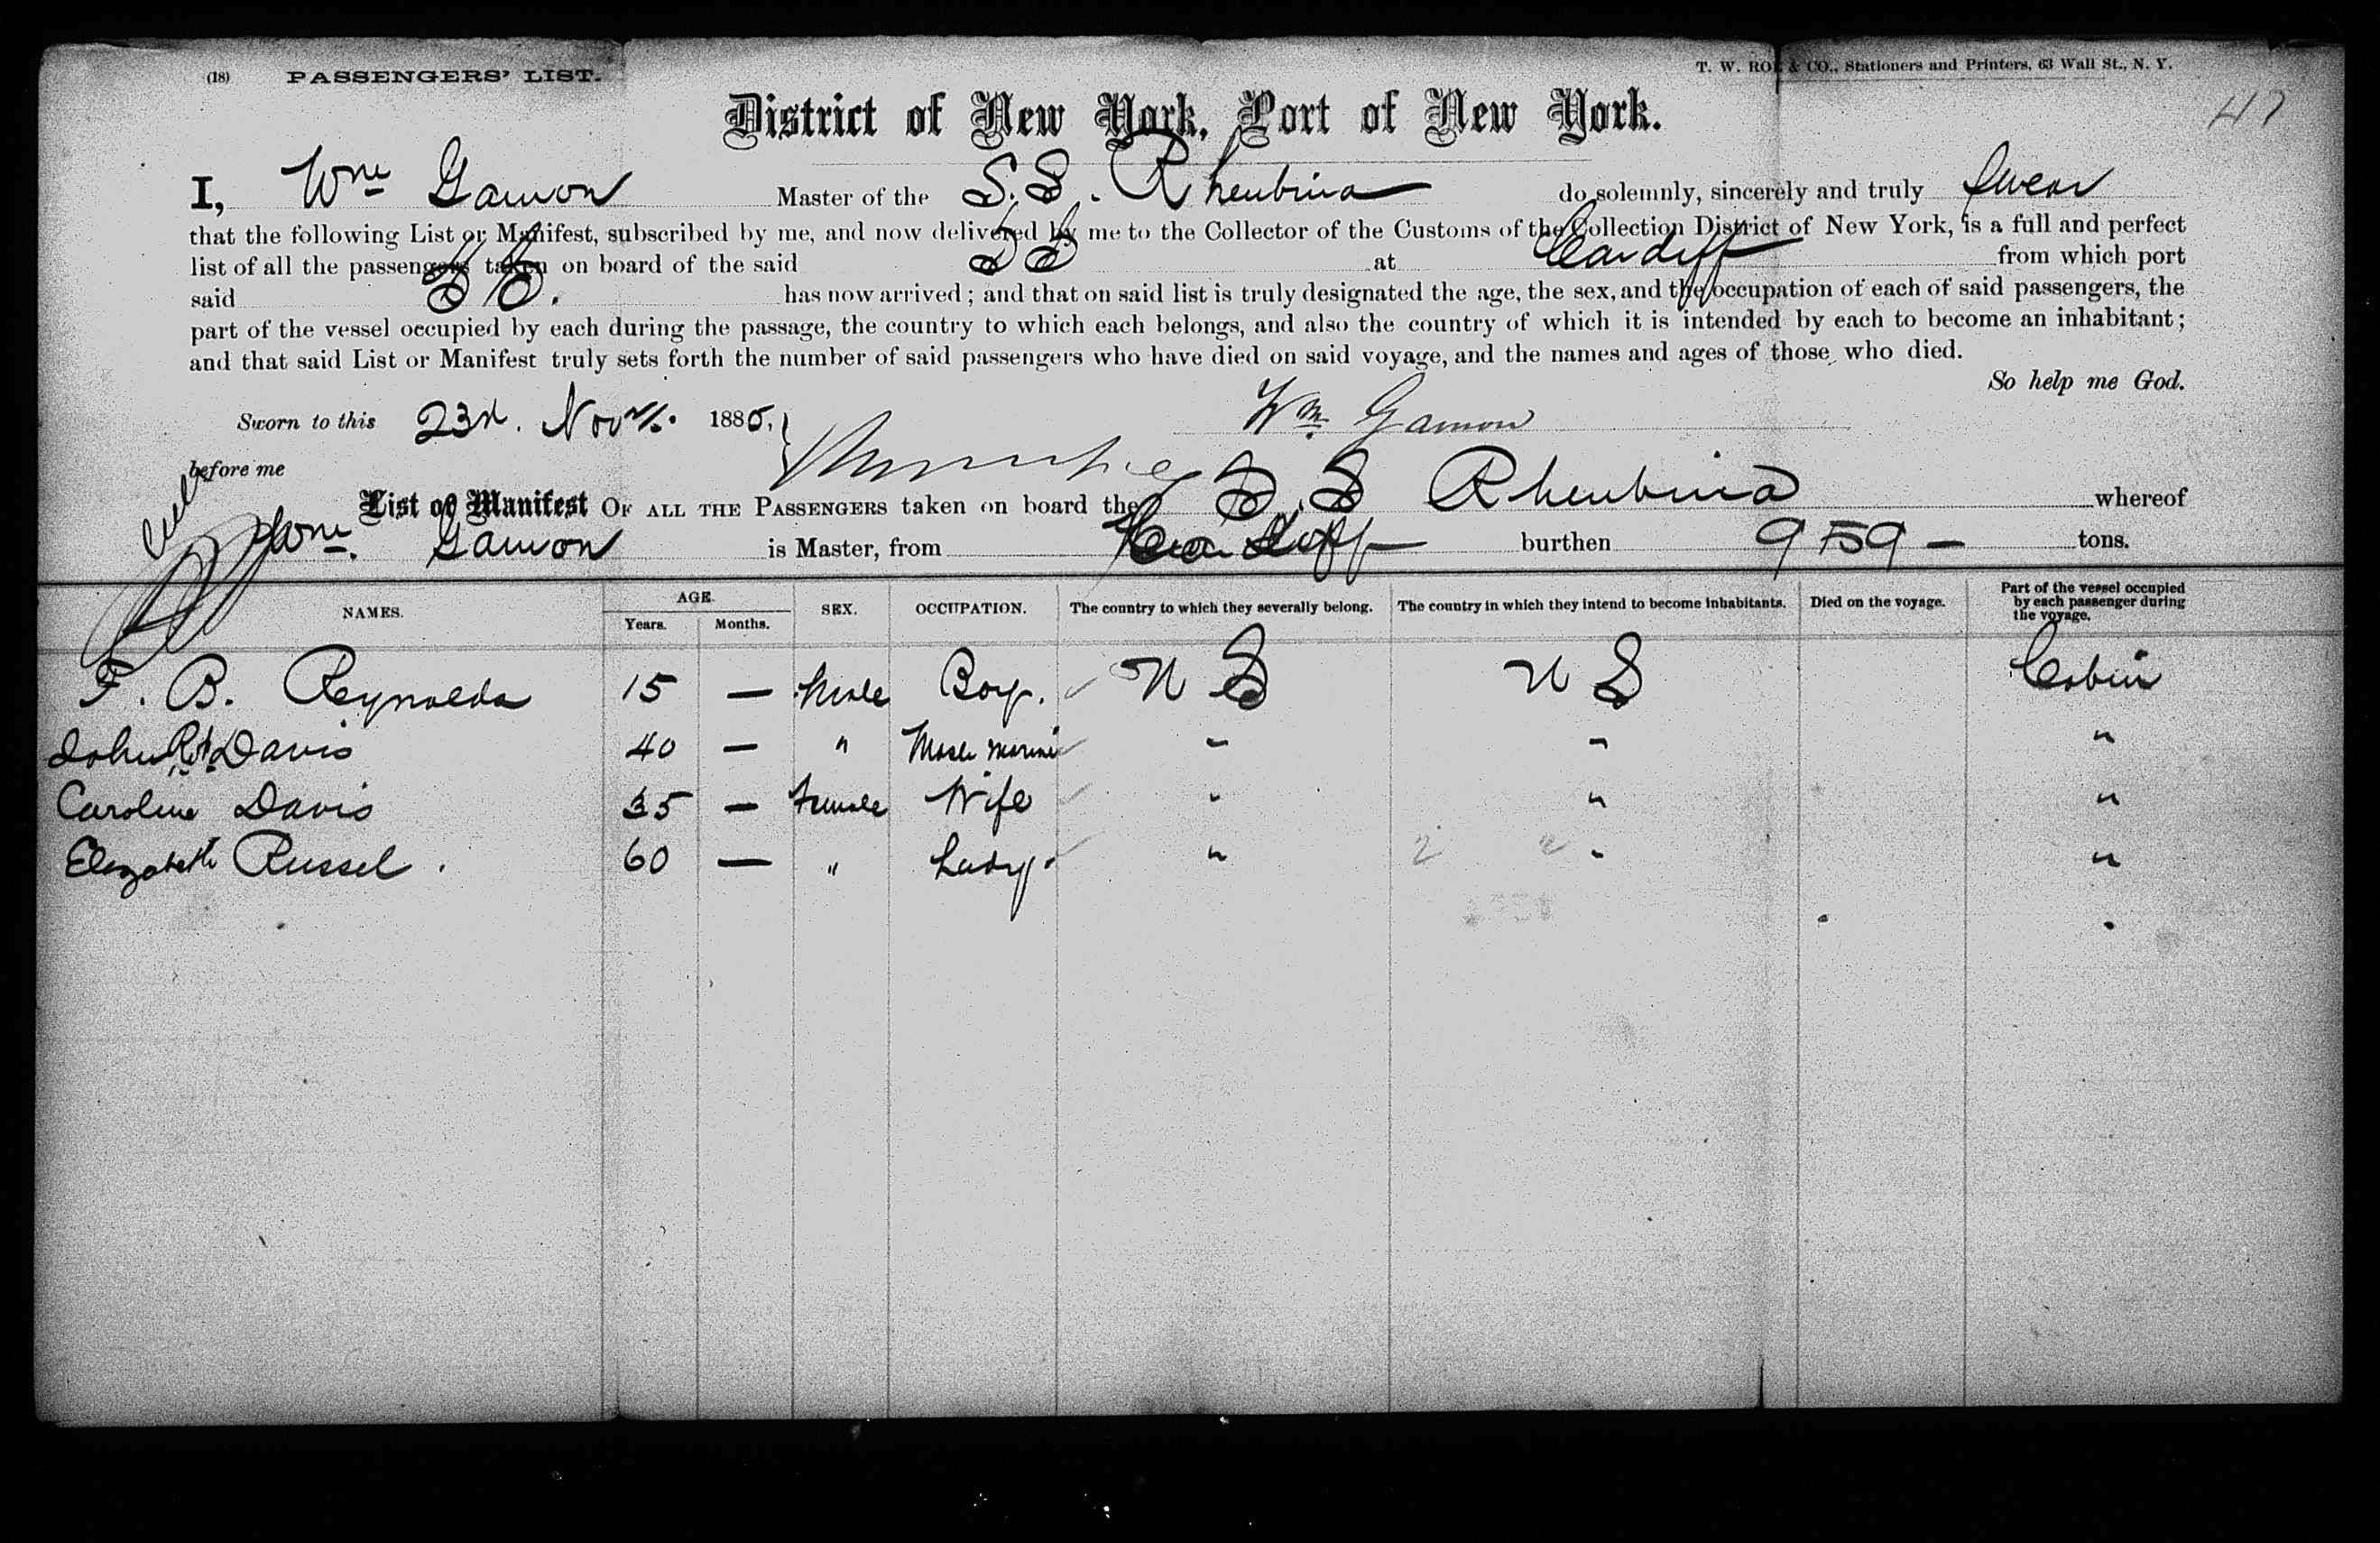 (18) PASSENGERS' LIST. T. W. ROE & CO., Stationers and Printers, 63 Wall St., N. Y.
47
District of New York, Port of New York.
I, Wm Gamon Master of the S.S. Rheubina do solemnly, sincerely and truly swear
that the following List or Manifest, subscribed by me, and now delivered by me to the Collector of the Customs of the Collection District of New York, is a full and perfect
list of all the passengers taken on board of the said SS at Cardiff from which port
said SS. has now arrived; and that on said list is truly designated the age, the sex, and the occupation of each of said passengers, the
part of the vessel occupied by each during the passage, the country to which each belongs, and also the country of which it is intended by each to become an inhabitant;
and that said List or Manifest truly sets forth the number of said passengers who have died on said voyage, and the names and ages of those who died.
So help me God.
Sworn to this 23rd. Nov 1885, Wm. Gamon
before me
List or Manifest OF ALL THE PASSENGERS taken on board the S.S Rheubina whereof
Wm. Gamon is Master, from Cardiff burthen 959 — tons.
NAMES. AGE. Years. Months. SEX. OCCUPATION. The country to which they severally belong. The country in which they intend to become inhabitants. Died on the voyage. Part of the vessel occupied by each passenger during the voyage.
F. B. Reynolds 15 — Male Boy. U S U S Cabin
John Rt. Davis 40 — " " " "
Caroline Davis 35 — Female Wife " " "
Elezabeth Russel. 60 — " Lady. " 2 2 " "